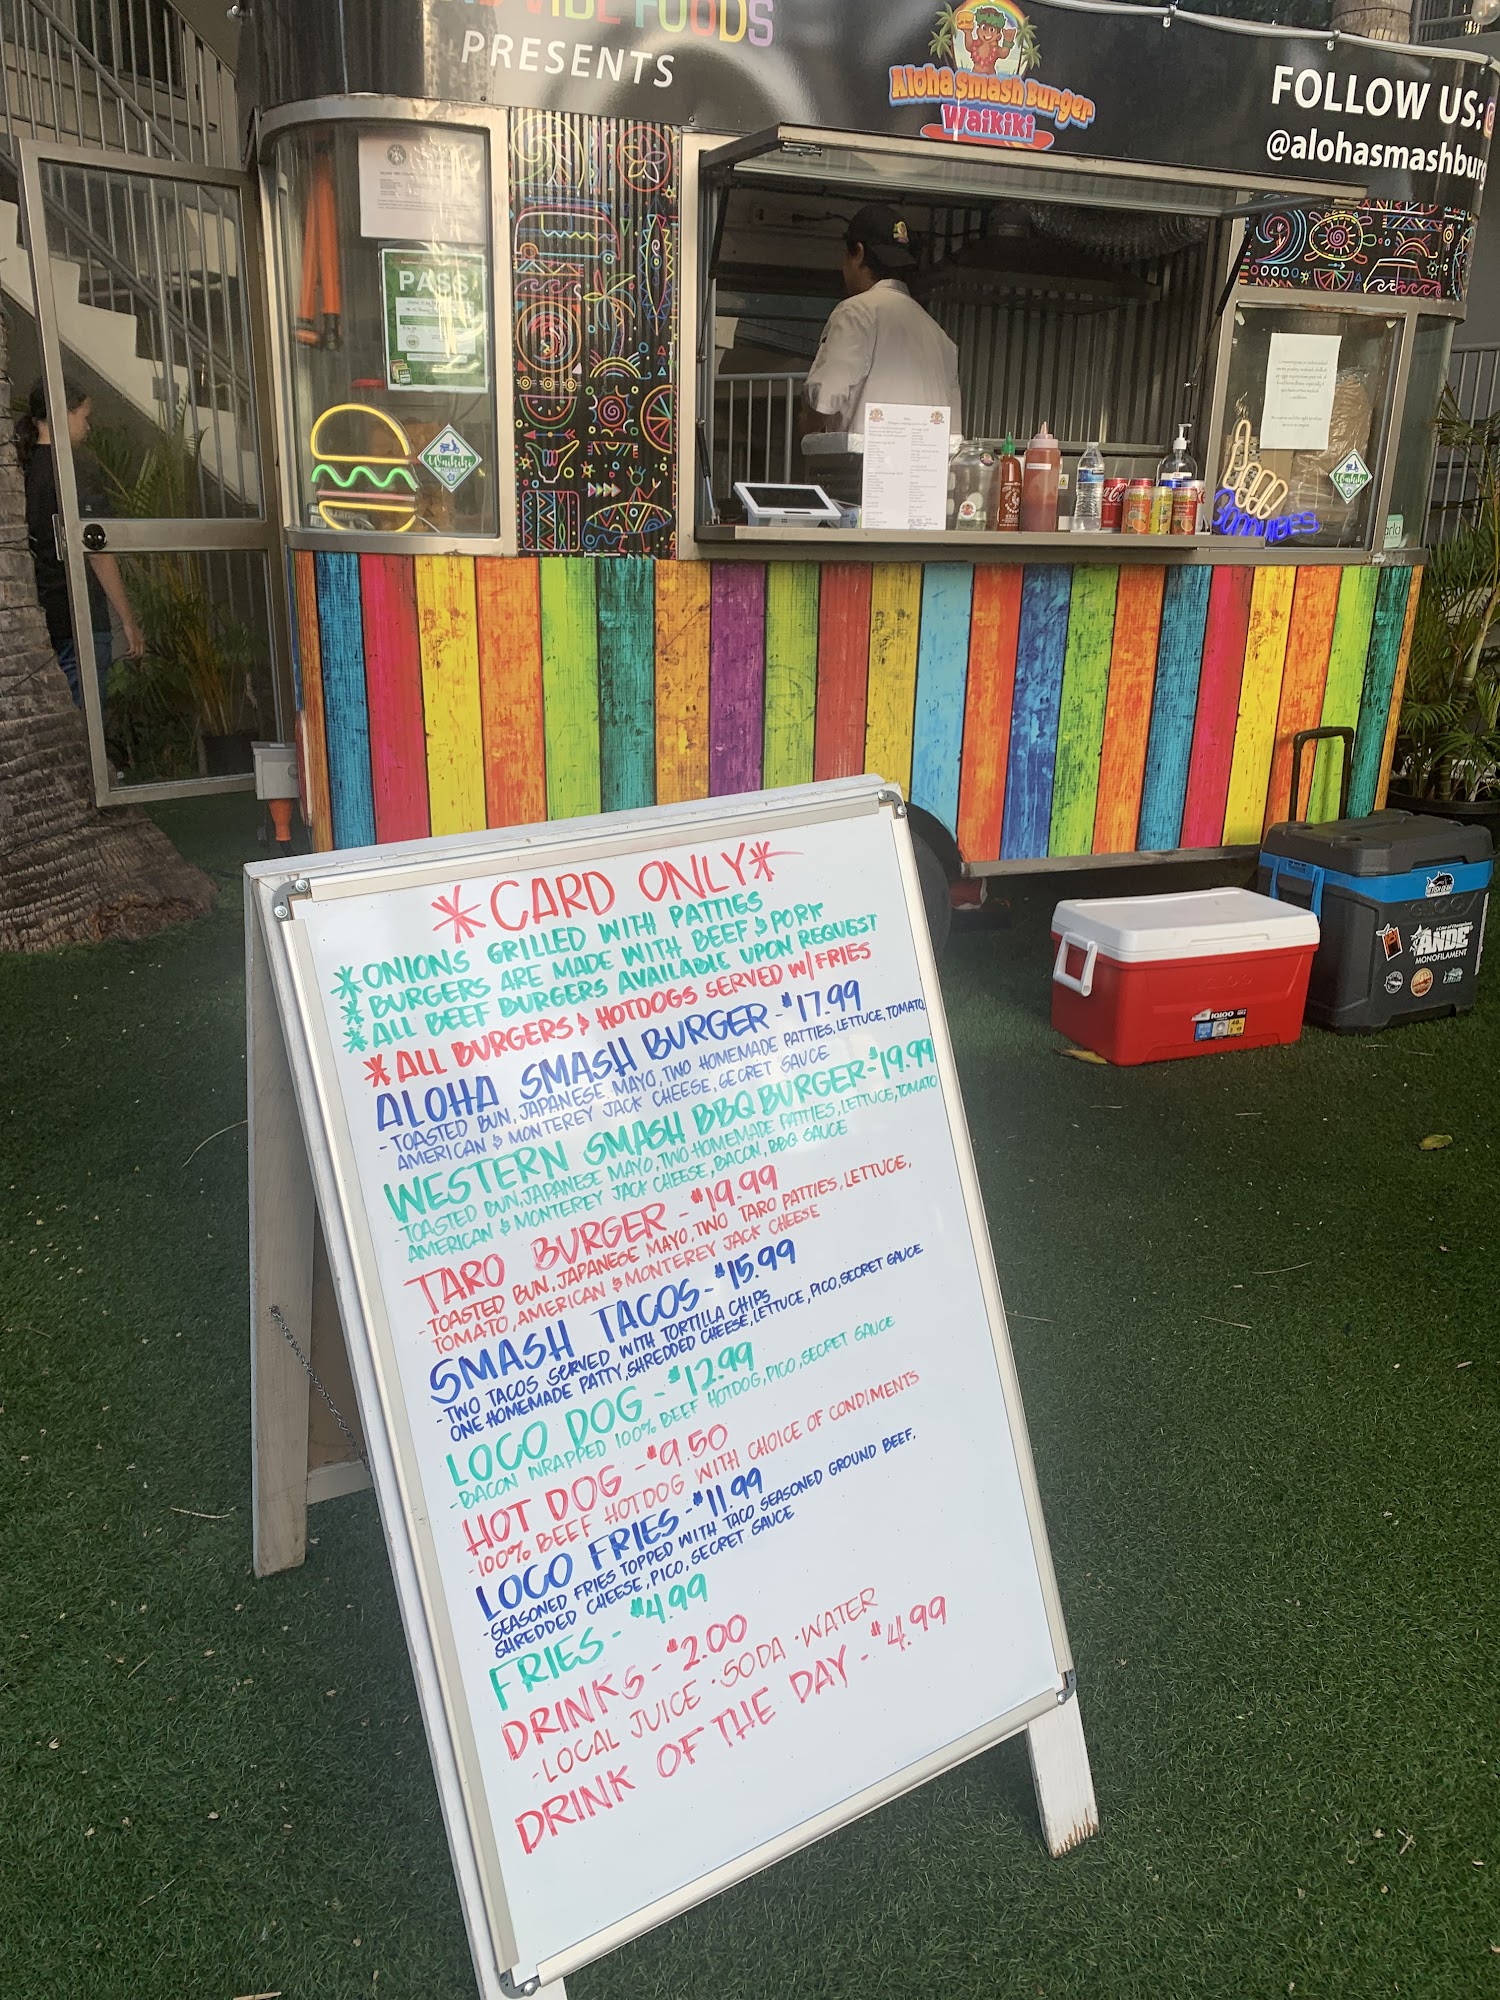 VIBE FOODS
PRESENTS
Aloha Smash Burger
Waikiki
FOLLOW US:
@alohasmashburg
PASS
Waikiki
GOODVIBES
Coca-Cola
IGLOO
ANDE
MONOFILAMENT
*CARD ONLY*
*ONIONS GRILLED WITH PATTIES
*BURGERS ARE MADE WITH BEEF & PORK
*ALL BEEF BURGERS AVAILABLE UPON REQUEST
*ALL BURGERS & HOTDOGS SERVED W/FRIES
ALOHA SMASH BURGER - $17.99
-TOASTED BUN, JAPANESE MAYO, TWO HOMEMADE PATTIES, LETTUCE, TOMATO,
AMERICAN & MONTEREY JACK CHEESE, SECRET SAUCE
WESTERN SMASH BBQ BURGER-$19.99
-TOASTED BUN, JAPANESE MAYO, TWO HOMEMADE PATTIES, LETTUCE, TOMATO
AMERICAN & MONTEREY JACK CHEESE, BACON, BBQ SAUCE
TARO BURGER - $19.99
-TOASTED BUN, JAPANESE MAYO, TWO TARO PATTIES, LETTUCE,
TOMATO, AMERICAN & MONTEREY JACK CHEESE
SMASH TACOS - $15.99
-TWO TACOS SERVED WITH TORTILLA CHIPS
ONE HOMEMADE PATTY, SHREDDED CHEESE, LETTUCE, PICO, SECRET SAUCE
LOCO DOG - $12.99
-BACON WRAPPED 100% BEEF HOTDOG, PICO, SECRET SAUCE
HOT DOG - $9.50
-100% BEEF HOTDOG WITH CHOICE OF CONDIMENTS
LOCO FRIES - $11.99
-SEASONED FRIES TOPPED WITH TACO SEASONED GROUND BEEF,
SHREDDED CHEESE, PICO, SECRET SAUCE
FRIES - $4.99
DRINKS - $2.00
-LOCAL JUICE · SODA · WATER
DRINK OF THE DAY - $4.99